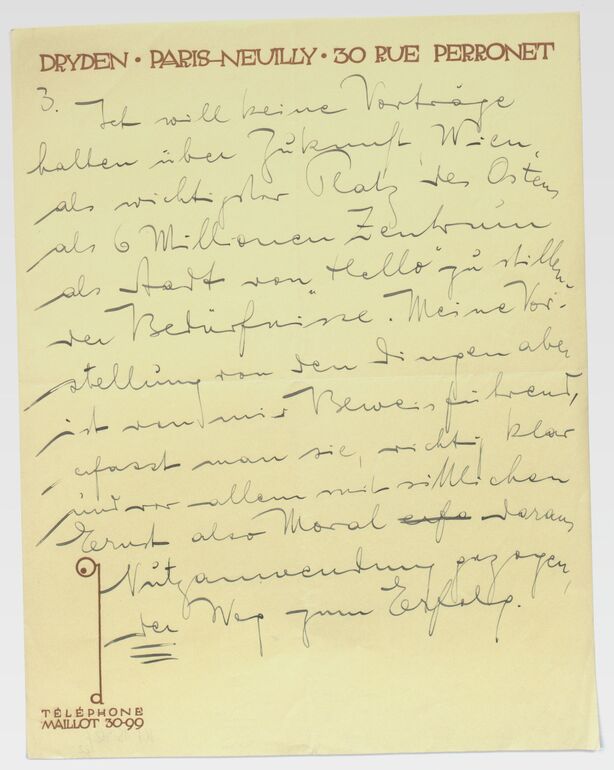 DRYDEN · PARIS-NEUILLY · 30 RUE PERRONET
3. Ich will keine Vorträge
halten über Zukunft, Wien,
als wichtigster Platz des Ostens
als 6 Millionen Zentrum
als Stadt von "Hello" zu stillen-
der Bedürfnisse. Meine Vor-
stellung von den Dingen aber
ist von mir Beweisführend,
erfasst man sie, richtig klar
und vor allem mit sittlichen
Ernst also Moral daraus
Nutzanwendung gezogen,
der Weg zum Erfolg.
TÉLÉPHONE
MAILLOT 30-99